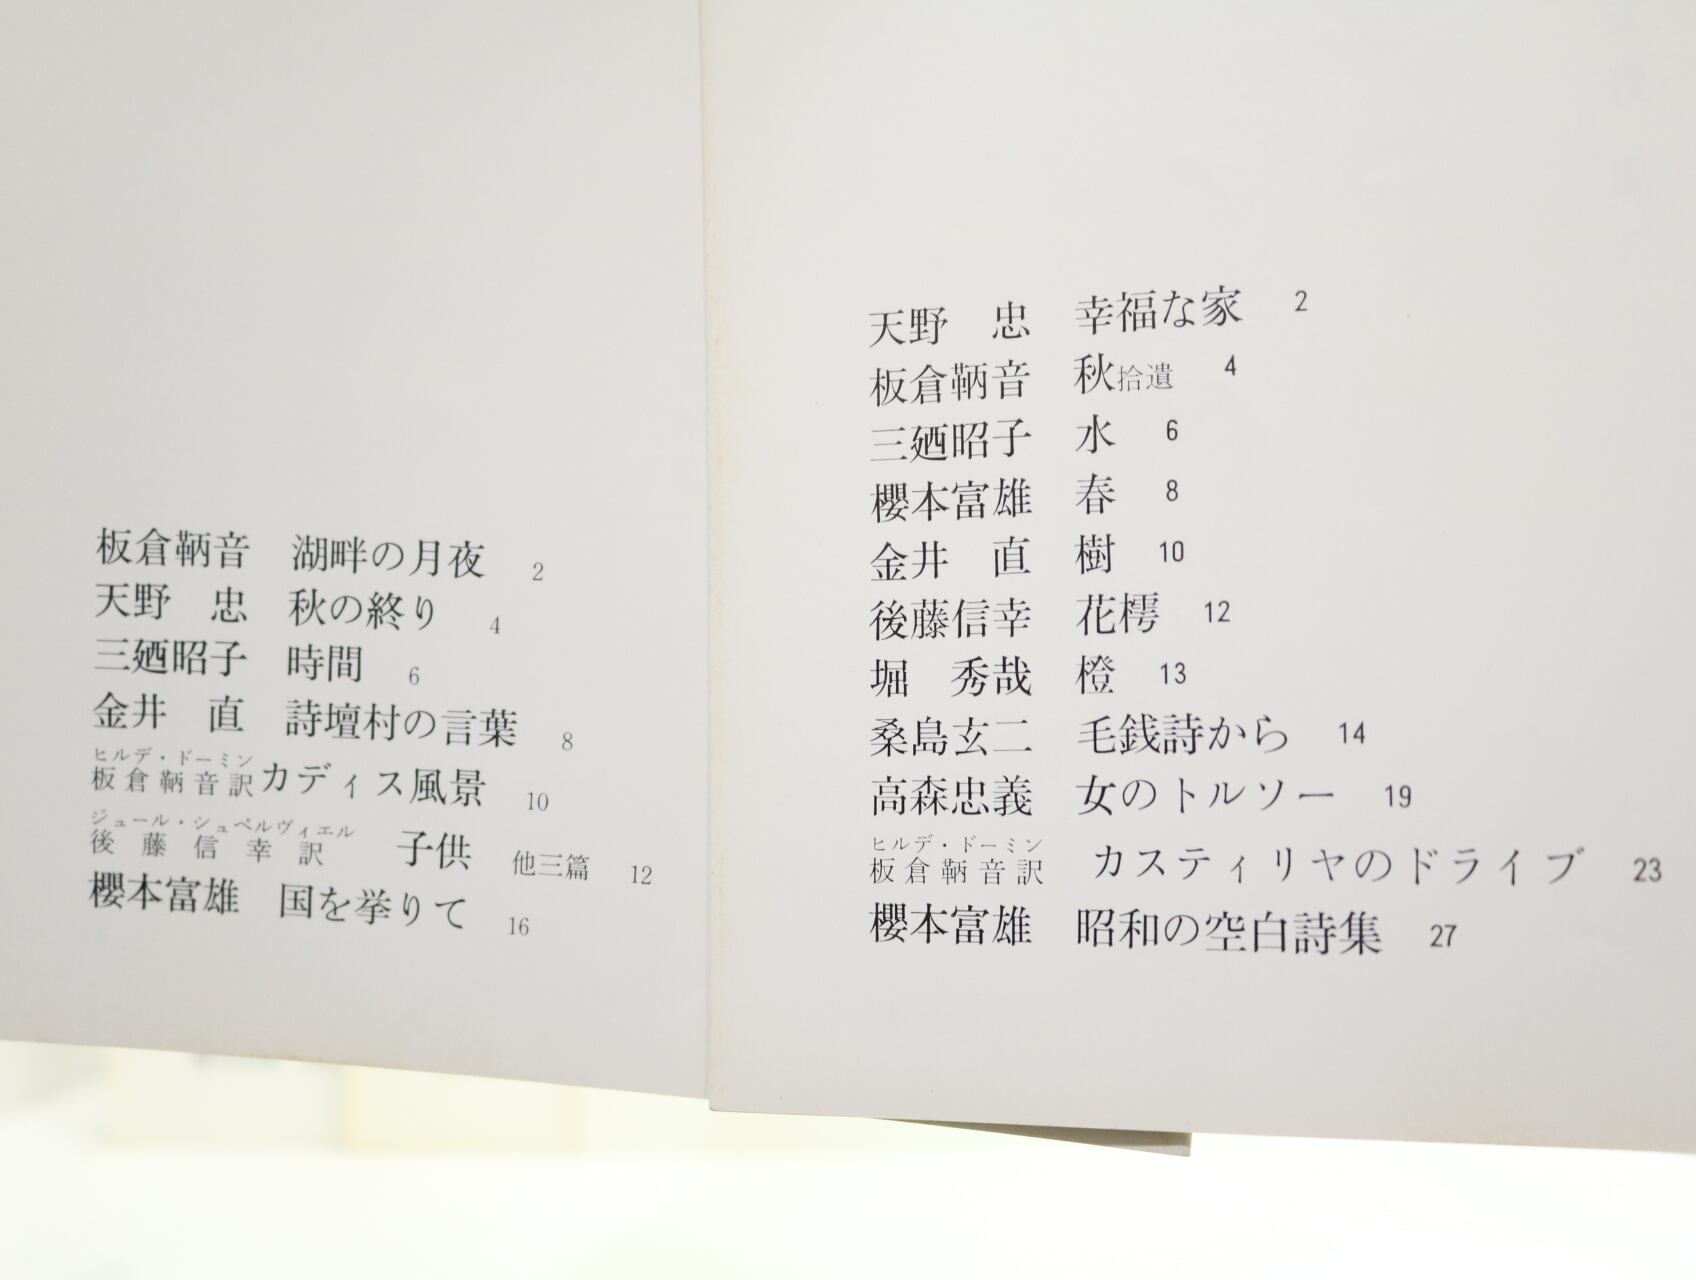 板倉鞆音 湖畔の月夜 2
天野 忠 秋の終り 4
三廼昭子 時間 6
金井 直 詩壇村の言葉 8
ヒルデ・ドーミン
板倉鞆音訳 カディス風景 10
ジュール・シュペルヴィエル
後藤信幸訳 子供 他三篇 12
櫻本富雄 国を挙りて 16
天野 忠 幸福な家 2
板倉鞆音 秋拾遺 4
三廼昭子 水 6
櫻本富雄 春 8
金井 直 樹 10
後藤信幸 花樗 12
堀 秀哉 橙 13
桑島玄二 毛銭詩から 14
高森忠義 女のトルソー 19
ヒルデ・ドーミン
板倉鞆音訳 カスティリヤのドライブ 23
櫻本富雄 昭和の空白詩集 27